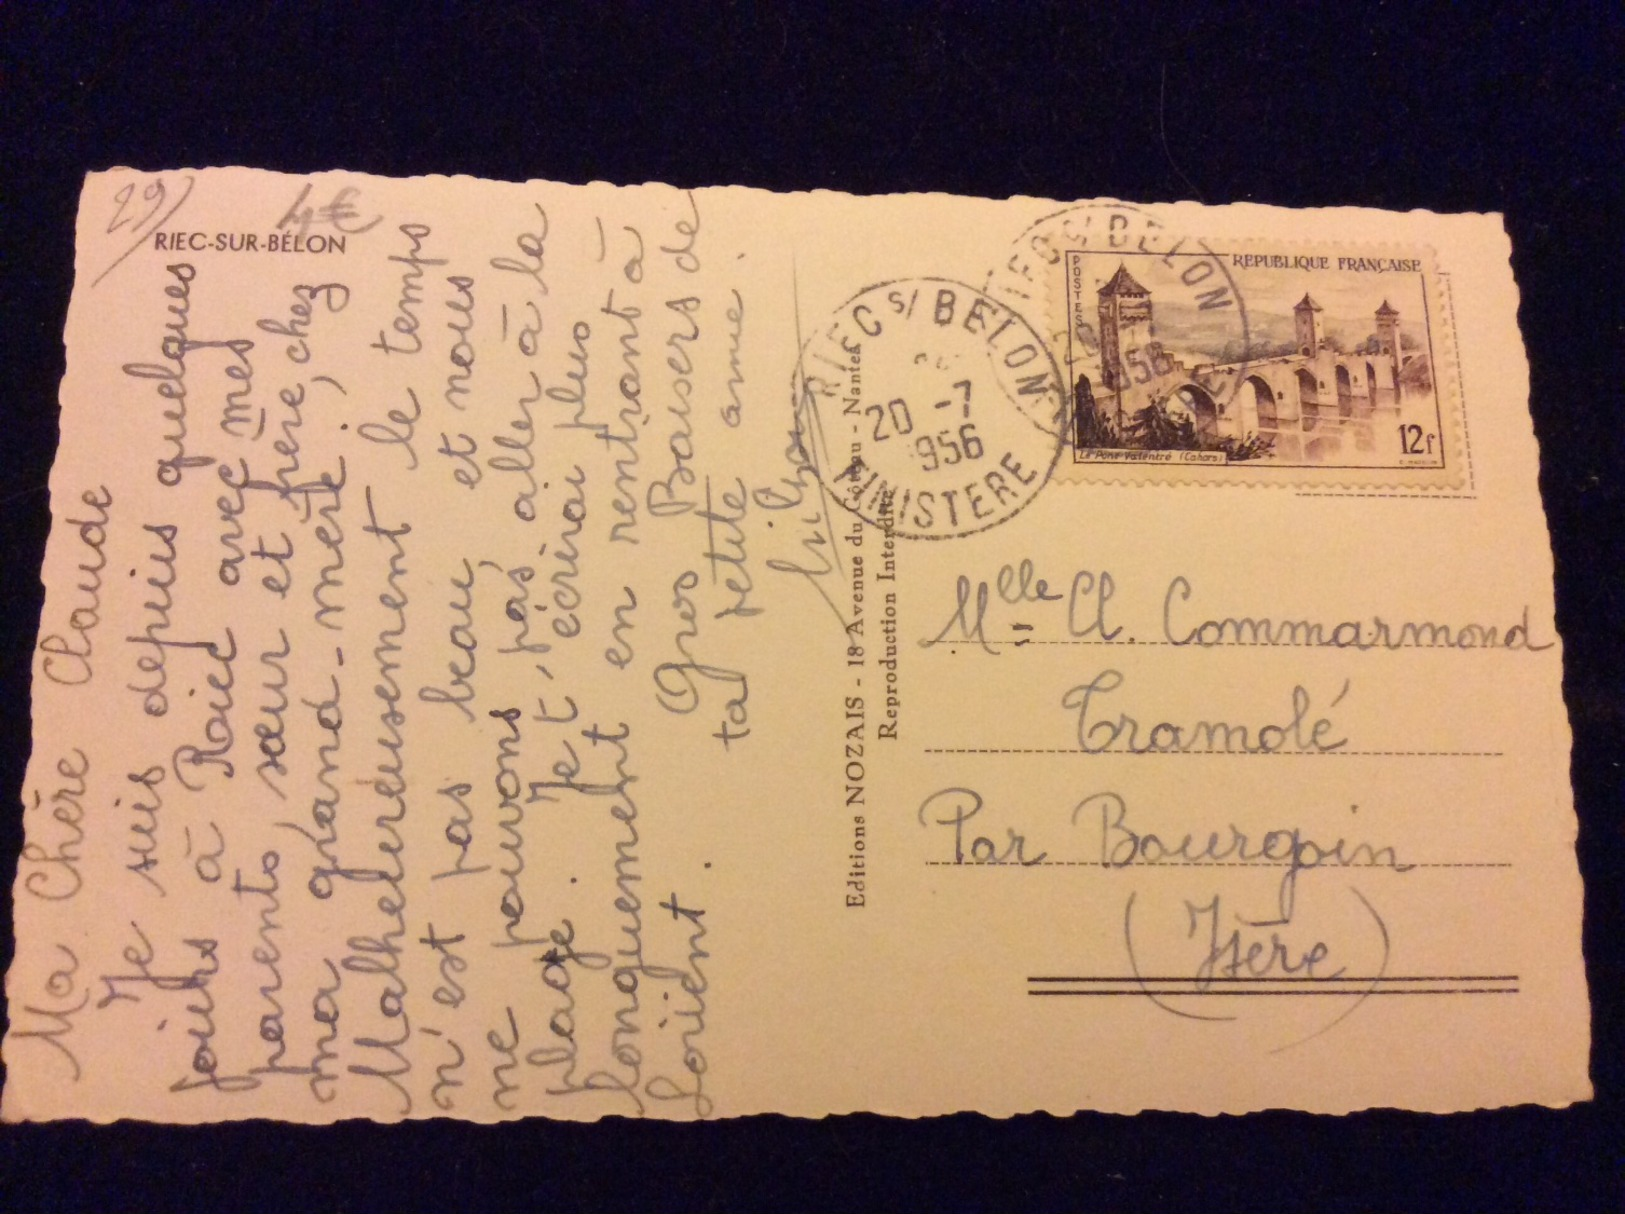 29)
4€
RIEC-SUR-BÉLON
Ma Chère Claude
Je suis depuis quelques
jours à Roiec avec mes
parents, sœur et frère, chez
ma grand-mère.
Malheureusement le temps
n'est pas beau, et nous
ne pouvons pas aller à la
plage. Je t'écrirai plus
longuement en rentrant à
Lorient.
Gros Baisers de
ta petite amie.
Editions NOZAIS - 18 Avenue du Côteau - Nantes
Reproduction Interdite
RIEC S/ BELON
20 -7
1956
FINISTERE
RIEC S/ BELON
1956
POSTES
REPUBLIQUE FRANÇAISE
Le Pont Valentré (Cahors)
12f
Mlle Cl. Commarmond
Tramolé
Par Bourgoin
(Isère)